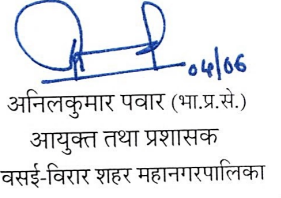 04/06
अनिलकुमार पवार (भा.प्र.से.)
आयुक्त तथा प्रशासक
वसई-विरार शहर महानगरपालिका